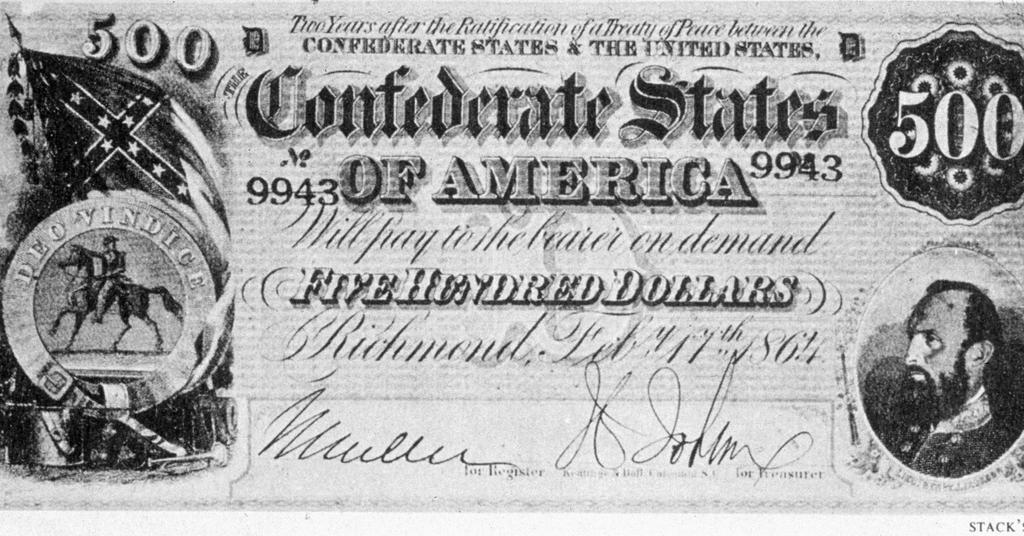 500
D
Two Years after the Ratification of a Treaty of Peace between the
CONFEDERATE STATES & THE UNITED STATES,
D
THE
Confederate States
OF AMERICA
No
9943
9943
500
Will pay to the bearer on demand
FIVE HUNDRED DOLLARS
Richmond, Feby. 17th 1864
DEO VINDICE
for Register
Keatinge & Ball, Columbia S.C.
for Treasurer
STACK'S